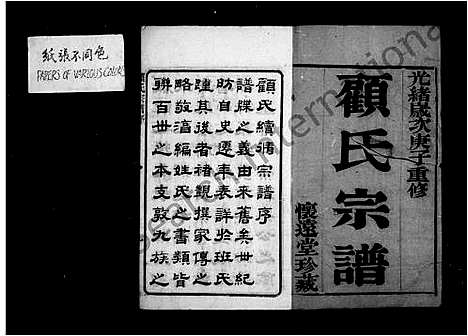 紙張不同色
PAPERS OF VARIOUS COLORS
光緒歲次庚子重修
顧氏宗譜
懷遠堂珍藏
顧氏續彌宗譜序
譜牒之義由來舊矣世紀
昉自史遷年表詳於班氏
踵其後者褚觀撰家傳之
略敬濇編姓氏之書類皆
聯百世之本支敦九族之